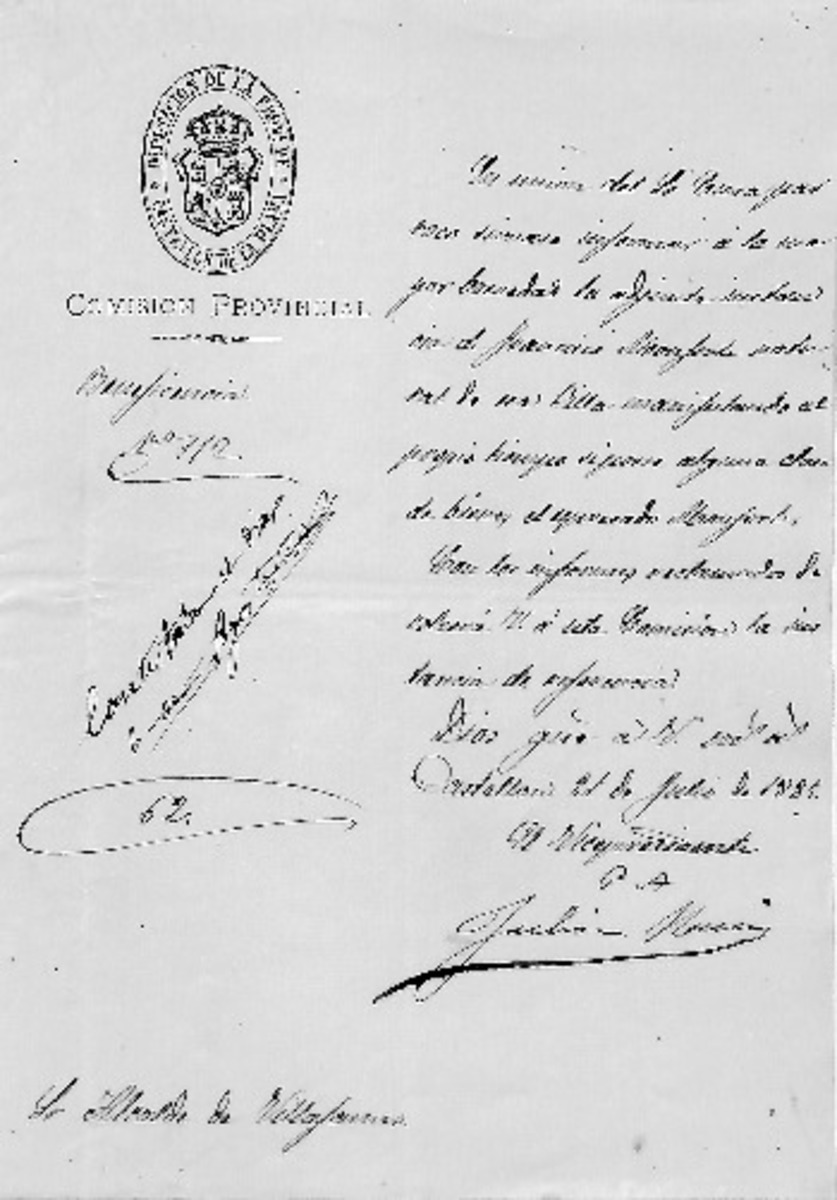 DIPUTACION DE LA PROV. DE
CASTELLON DE LA PLANA
COMISION PROVINCIAL
Beneficencia
Nº 712
Contestada el dia
62.
En union del Sr Cura par
roco sirvase informar á la ma
yor brevedad la adjunta instanc
cia de Francisco Monforte natu-
ral de esa Villa manifestando al
propio tiempo si posee alguna clase
de bienes el expresado Monforte.
Con los informes reclamados de
volverá V. á esta Comision la ins
tancia de referencia.
Dios gûe á V. ms as
Castellon 21 de Julio de 1881.
El Vicepresidente
P. A
Julian
Sr Alcalde de Villafames